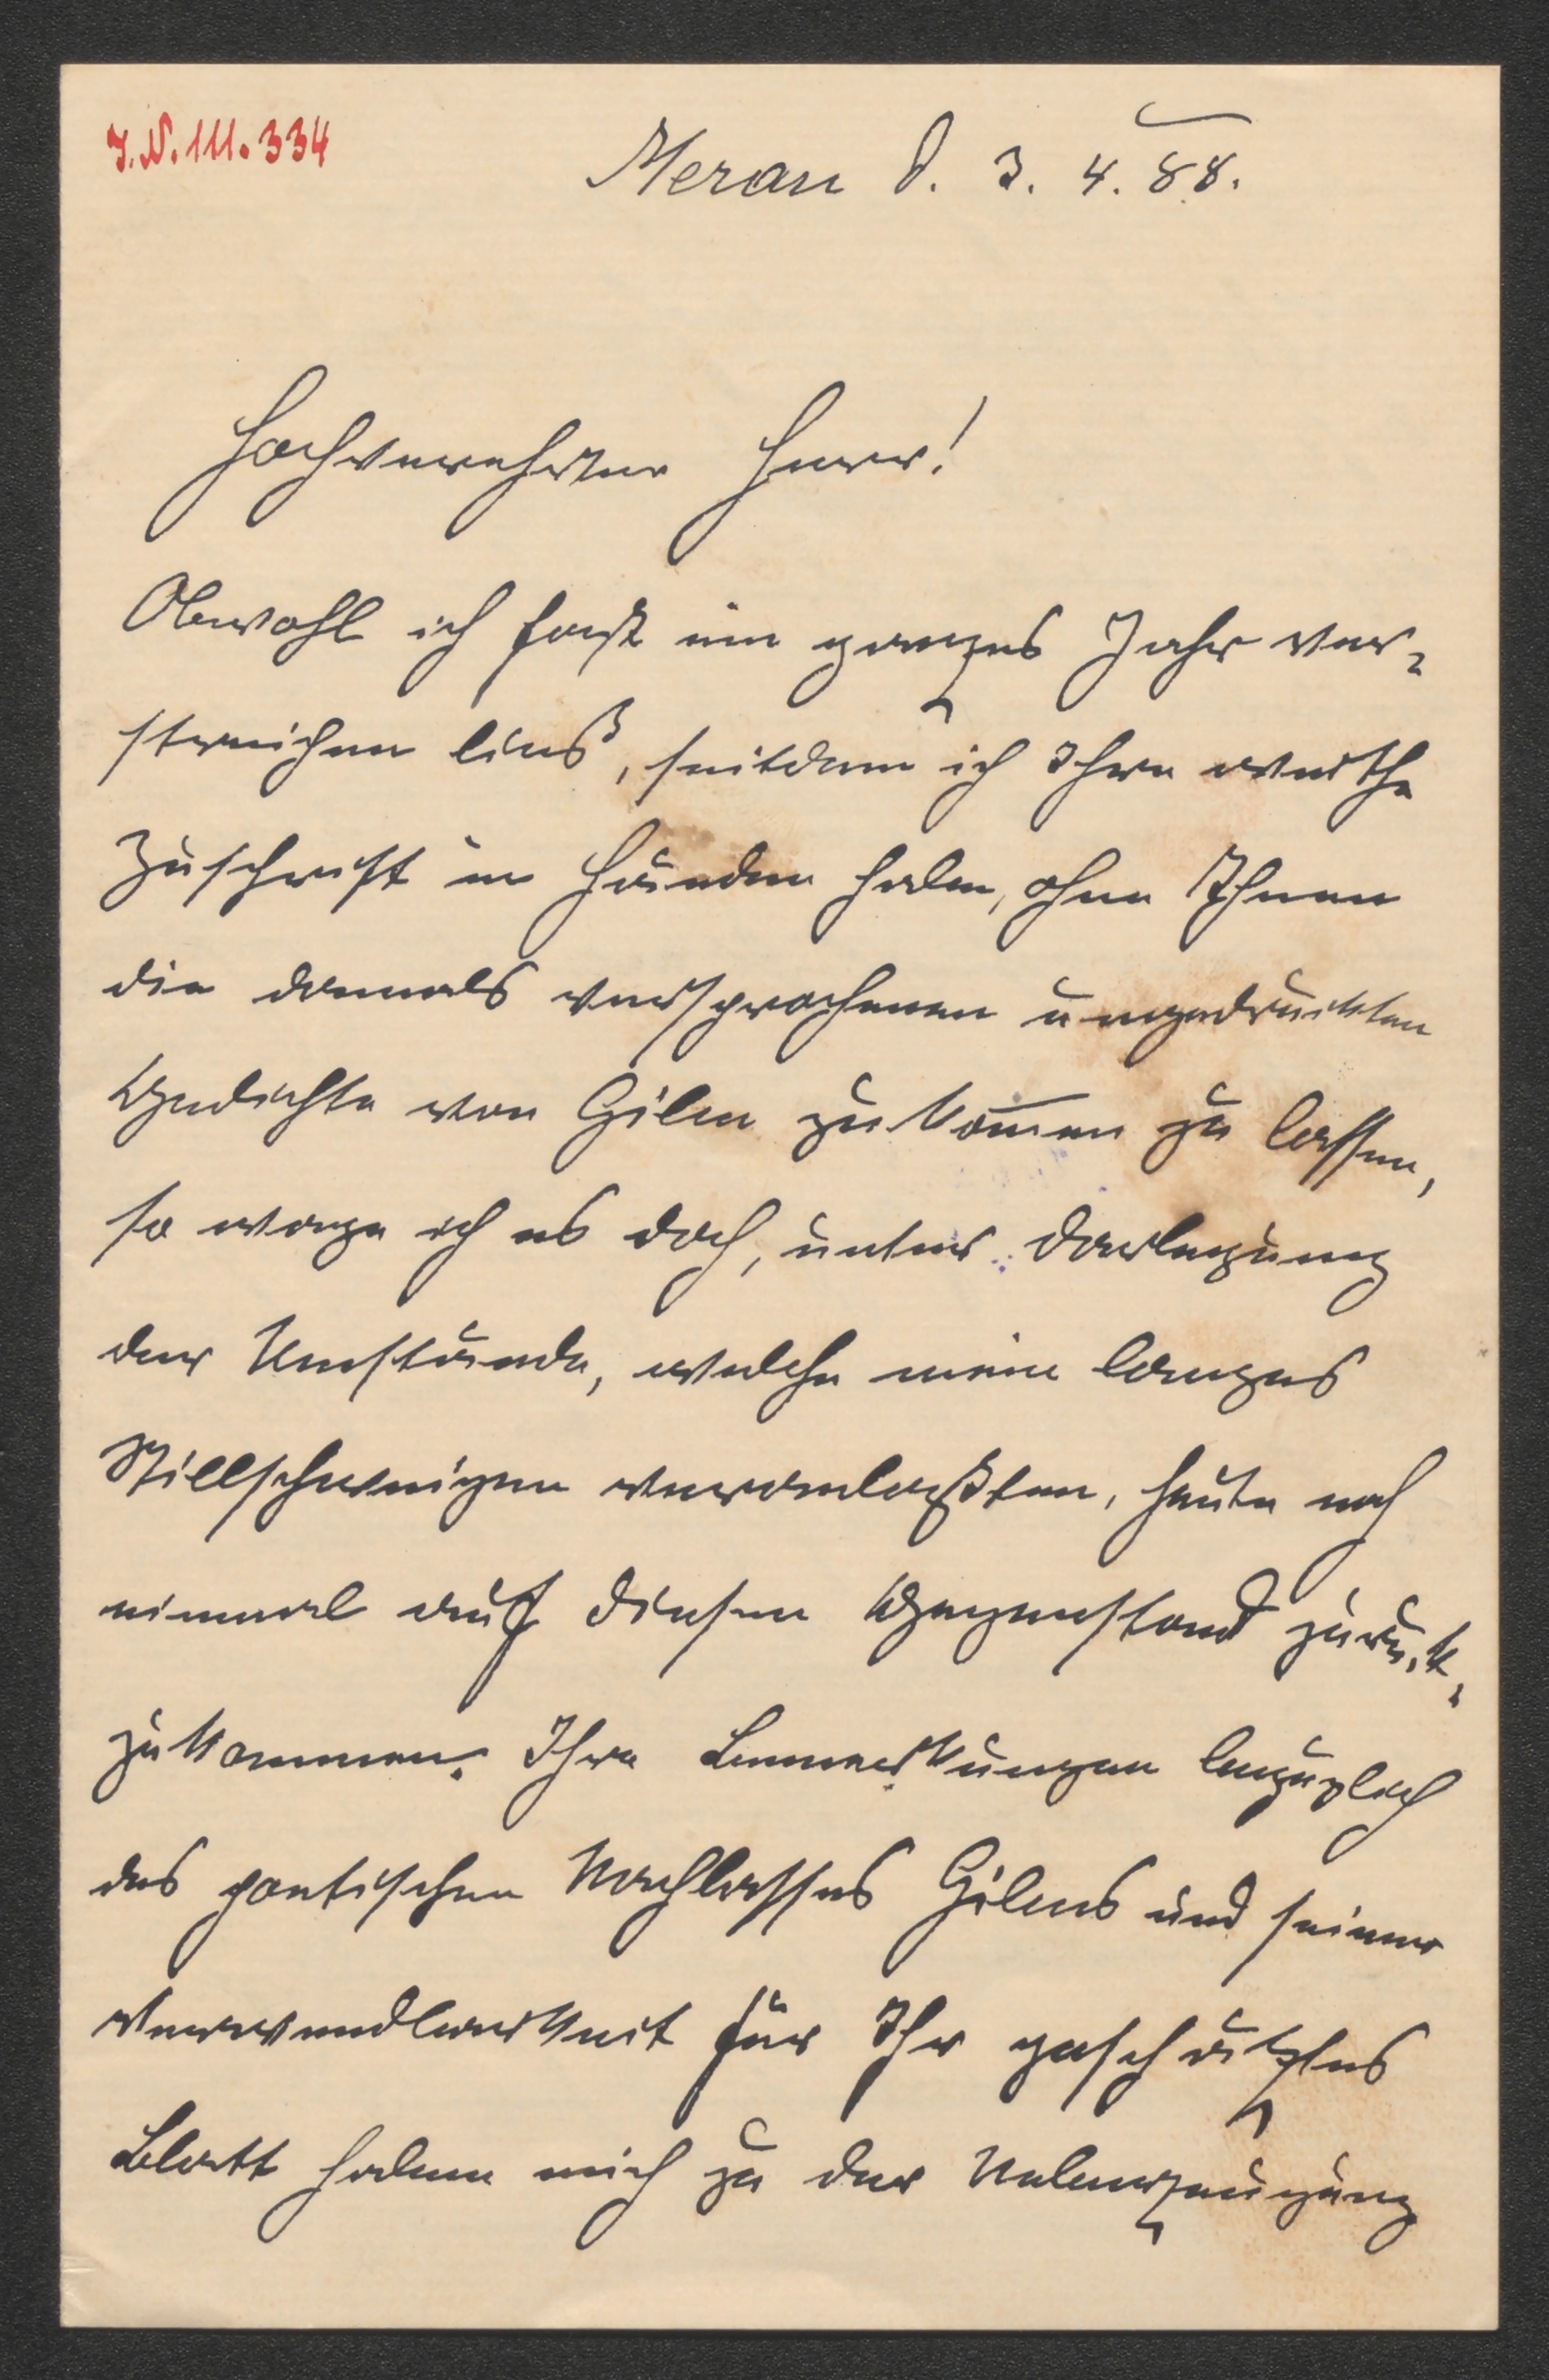 J.N. 111.334
Meran d. 3. 4. 88.
Hochverehrter Herr!
Obwohl ich fast ein ganzes Jahr ver-
streichen ließ, seitdem ich Ihre werthe
Zuschrift in Händen habe, ohne Ihnen
die damals versprochenen ungedruckten
Gedichte von Gilm zukommen zu lassen,
so wage ich es doch, unter Darlegung
der Umstände, welche mein langes
Stillschweigen veranlaßten, heute noch
einmal auf diesen Gegenstand zurück-
zukommen. Ihre Bemerkungen bezüglich
des poetischen Nachlasses Gilms und seiner
Verwendbarkeit für Ihr geschätztes
Blatt haben mich zu der Ueberzeugung